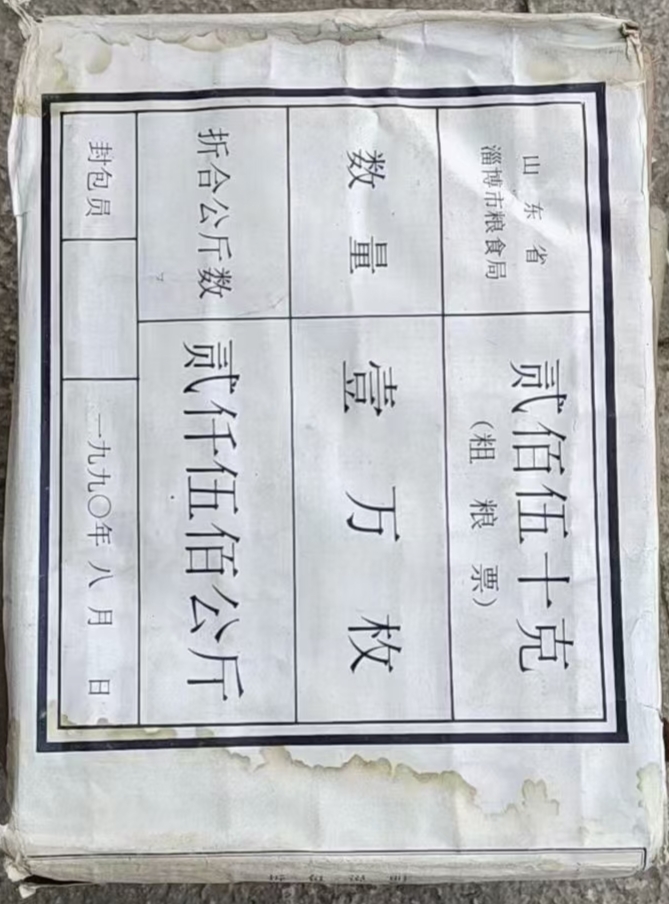 山东省
淄博市粮食局
贰佰伍十克
(粗粮票)
数量
壹万枚
折合公斤数
贰仟伍佰公斤
封包员
一九九〇年八月 日